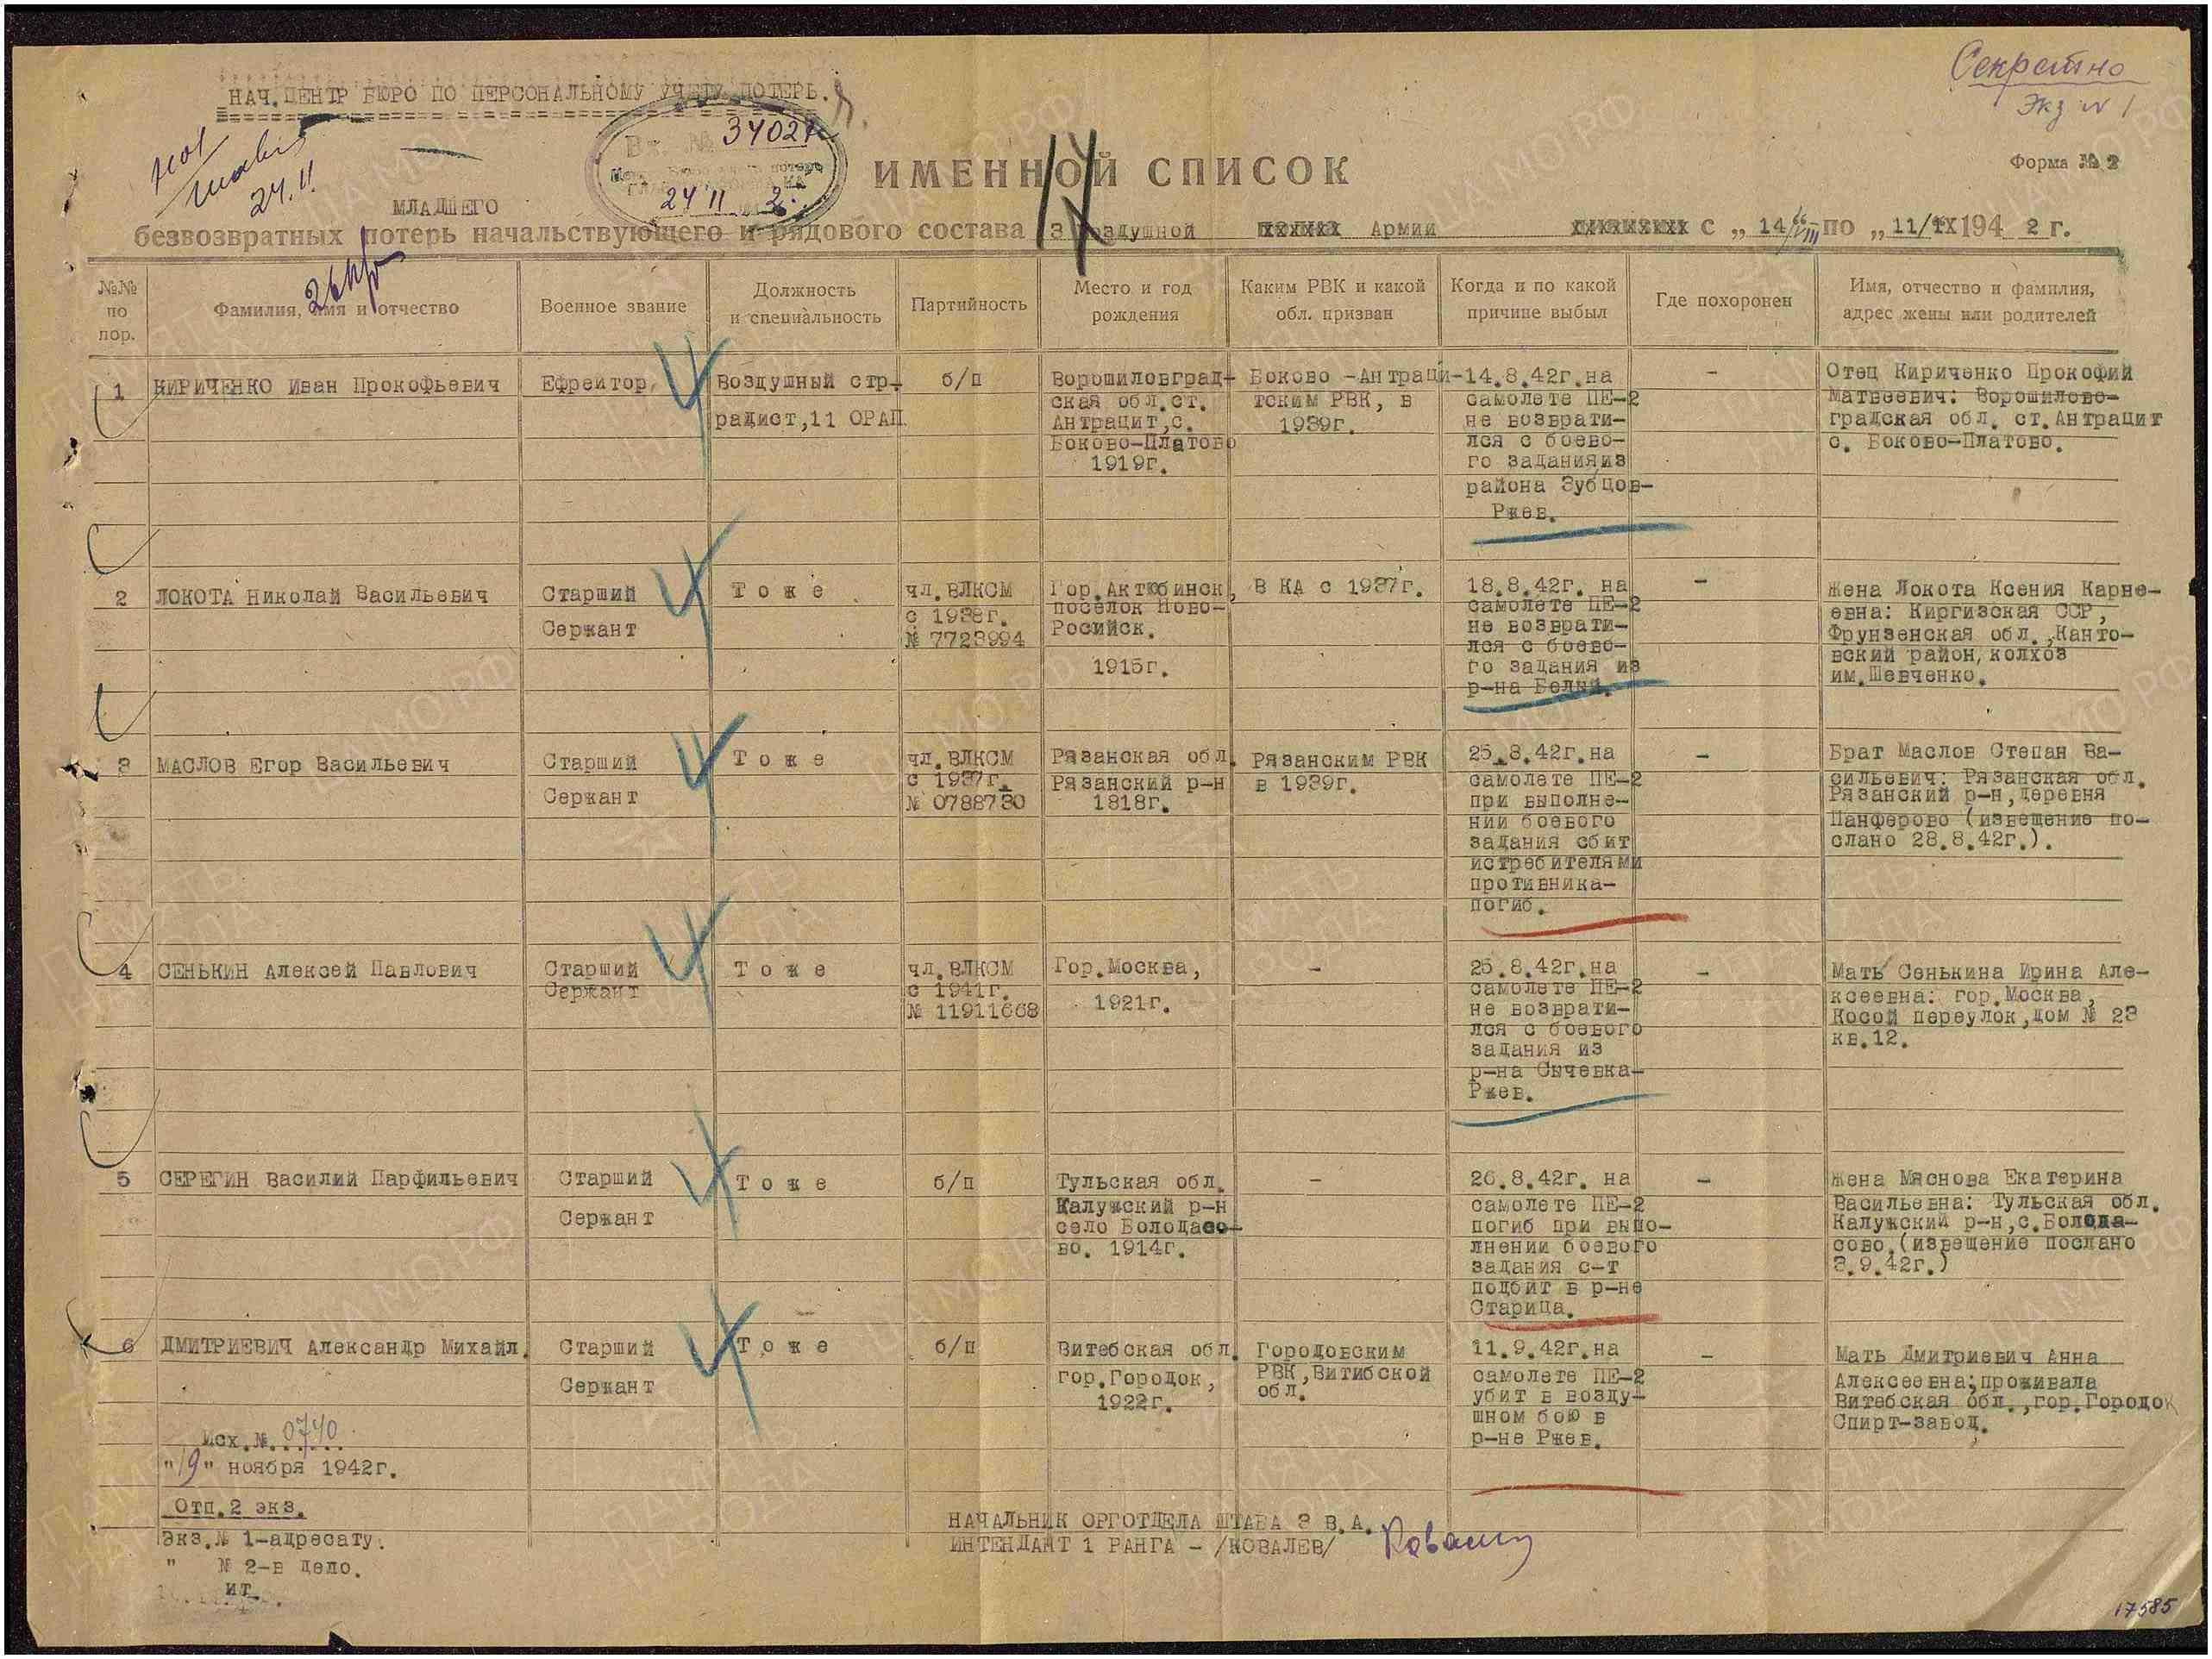 Секретно
Экз № 1
НАЧ. ЦЕНТР БЮРО ПО ПЕРСОНАЛЬНОМУ УЧЕТУ ПОТЕРЬ.
Вх. № 34027
24 11 2.
24.11.
14
ИМЕННОЙ СПИСОК
Форма № 2
МЛАДШЕГО
безвозвратных потерь начальствующего и рядового состава 3 Воздушной Армии с „ 14/VIII по „ 11/IX 194 2 г.
№№ по пор.
Фамилия, имя и отчество
Военное звание
Должность и специальность
Партийность
Место и год рождения
Каким РВК и какой обл. призван
Когда и по какой причине выбыл
Где похоронен
Имя, отчество и фамилия, адрес жены или родителей
1
КИРИЧЕНКО Иван Прокофьевич
Ефрейтор
Воздушный стр-
радист, 11 ОРАП
б/п
Ворошиловград-
ская обл.ст.
Антрацит,с.
Боково-Платово
1919г.
Боково -Антраци-
тским РВК, в
1939г.
14.8.42г.на
самолете ПЕ-2
не возврати-
лся с боево-
го задания из
района Зубцов-
Ржев.
-
Отец Кириченко Прокофий
Матвеевич: Ворошилово-
градская обл. ст.Антрацит
с. Боково-Платово.
2
ЛОКОТА Николай Васильевич
Старший
Сержант
Т о ж е
чл.ВЛКСМ
с 1938г.
№ 7723994
Гор.Актюбинск,
поселок Ново-
Росийск.
1915г.
В КА с 1937г.
18.8.42г. на
самолете ПЕ-2
не возврати-
лся с боево-
го задания из
р-на Белый.
-
Жена Локота Ксения Карне-
евна: Киргизская ССР,
Фрунзенская обл.,Канто-
вский район,колхоз
им.Шевченко.
3
МАСЛОВ Егор Васильевич
Старший
Сержант
Т о ж е
чл.ВЛКСМ
с 1937г.
№ 0788730
Рязанская обл.
Рязанский р-н
1818г.
Рязанским РВК
в 1939г.
25.8.42г.на
самолете ПЕ-2
при выполне-
нии боевого
задания сбит
истребителями
противника-
погиб.
-
Брат Маслов Степан Ва-
сильевич: Рязанская обл.
Рязанский р-н,деревня
Панферово (извещение по-
слано 28.8.42г.).
4
СЕНЬКИН Алексей Павлович
Старший
Сержант
Т о ж е
чл.ВЛКСМ
с 1941г.
№ 11911668
Гор.Москва,
1921г.
-
25.8.42г.на
самолете ПЕ-2
не возврати-
лся с боевого
задания из
р-на Сычевка-
Ржев.
-
Мать Сенькина Ирина Але-
ксеевна: гор.Москва,
Косой переулок,дом № 23
кв.12.
5
СЕРЕГИН Василий Парфильевич
Старший
Сержант
Т о ж е
б/п
Тульская обл.
Калужский р-н
село Болодасо-
во. 1914г.
-
26.8.42г. на
самолете ПЕ-2
погиб при выпо-
лнении боевого
задания с-т
подбит в р-не
Старица.
-
Жена Мяснова Екатерина
Васильевна: Тульская обл.
Калужский р-н,с.Болода-
сово.(извещение послано
3.9.42г.)
6
ДМИТРИЕВИЧ Александр Михайл.
Старший
Сержант
Т о ж е
б/п
Витебская обл.
гор.Городок,
1922г.
Городовским
РВК,Витибской
обл.
11.9.42г.на
самолете ПЕ-2
убит в возду-
шном бою в
р-не Ржев.
-
Мать Дмитриевич Анна
Алексеевна;проживала
Витебская обл.,гор.Городок
Спирт-завод.
Исх.№ 0740
"19" ноября 1942г.
Отп.2 экз.
Экз.№ 1-адресату.
" № 2-в дело.
ит.
НАЧАЛЬНИК ОРГОТДЕЛА ШТАБА 3 В.А.
ИНТЕНДАНТ 1 РАНГА - /КОВАЛЕВ/
17585